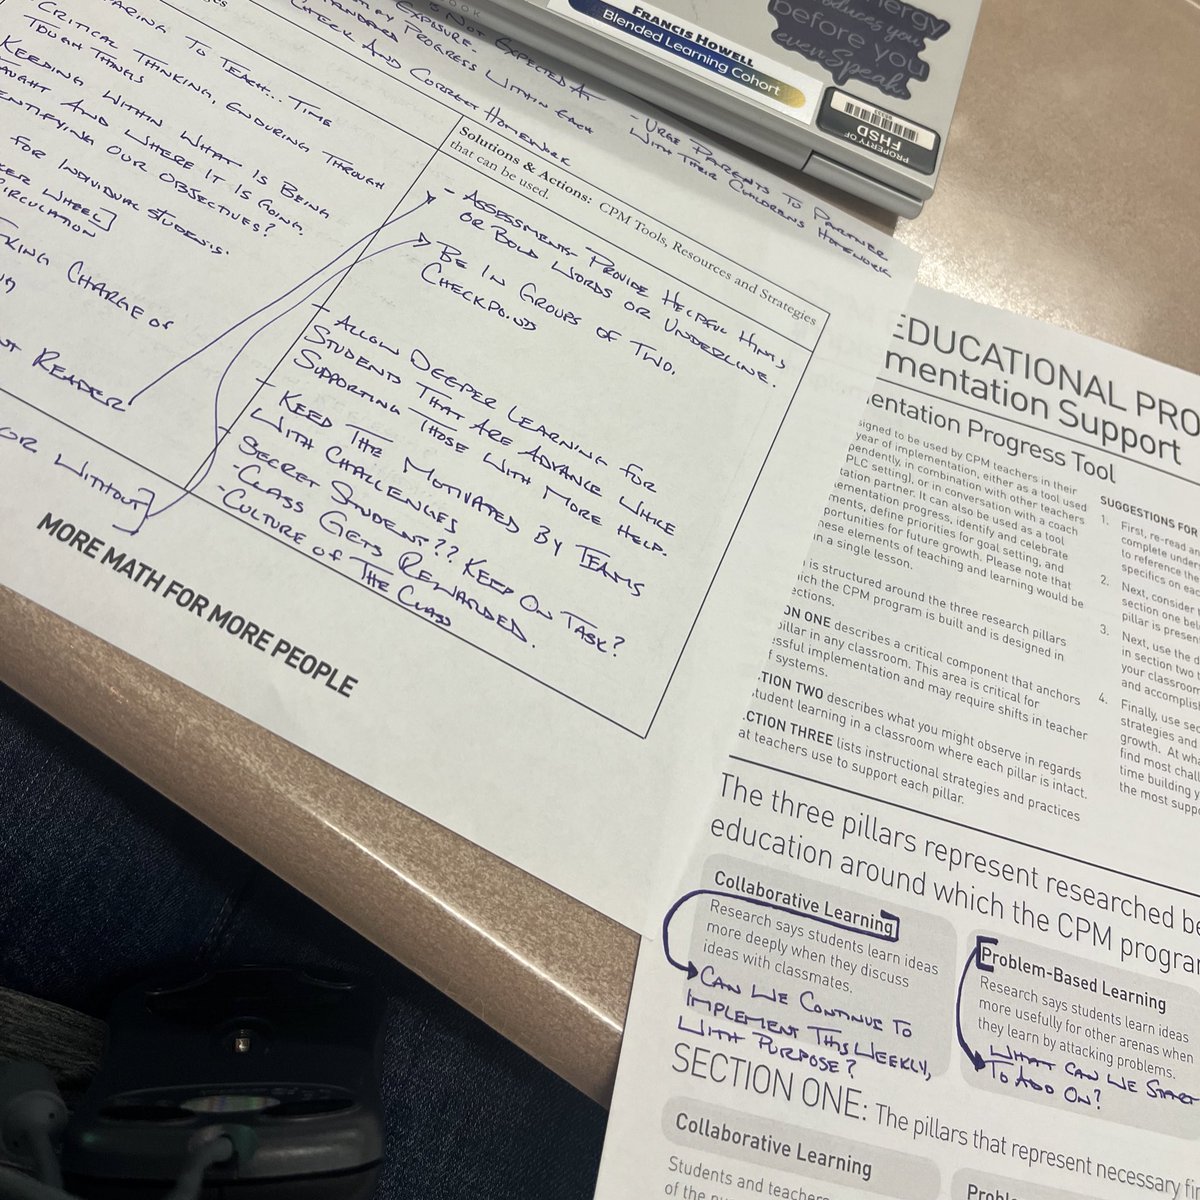 nergy
oduces you
before you
even Speak.
FRANCIS HOWELL
Blended Learning Cohort
PROPERTY OF
FHSD
EXPOSURE.
IS NOT EXPECTED AT
PROGRESS WITHIN EACH
CHECK AND CORRECT HOMEWORK
- URGE PARENTS TO PARTNER
WITH THEIR CHILDRENS HOMEWORK
TO TEACH... TIME
CRITICAL THINKING, ENDURING THROUGH
TOUGH THINGS
KEEPING WITHIN WHAT IS BEING
AUGHT AND WHERE IT IS GOING.
ENTIFYING OUR OBJECTIVES?
FOR INDIVIDUAL STUDENTS.
WHEEL]
IRCULATION
KING CHARGE OF
READER
OR WITHOUT]
Solutions & Actions: CPM Tools, Resources and Strategies
that can be used.
- ASSESSMENTS PROVIDE HELPFUL HINTS
OR BOLD WORDS OR UNDERLINE.
BE IN GROUPS OF TWO.
CHECKPOINTS
- ALLOW DEEPER LEARNING FOR
STUDENTS THAT ARE ADVANCE WHILE
SUPPORTING THOSE WITH MORE HELP.
- KEED THE MOTIVATED BY TEAMS
WITH CHALLENGES
SECRET STUDENT?? KEEP ON TASK?
- CLASS GETS REWARDED.
- CULTURE OF THE CLASS
MORE MATH FOR MORE PEOPLE
EDUCATIONAL PRO
mentation Support
entation Progress Tool
signed to be used by CPM teachers in their
year of implementation, either as a tool used
pendently, in combination with other teachers
PLC setting), or in conversation with a coach
tation partner. It can also be used as a tool
ementation progress, identify and celebrate
ments, define priorities for goal setting, and
portunities for future growth. Please note that
hese elements of teaching and learning would be
in a single lesson.
is structured around the three research pillars
ich the CPM program is built and is designed in
ections.
ON ONE describes a critical component that anchors
pillar in any classroom. This area is critical for
ssful implementation and may require shifts in teacher
f systems.
TION TWO describes what you might observe in regards
tudent learning in a classroom where each pillar is intact.
CTION THREE lists instructional strategies and practices
at teachers use to support each pillar.
SUGGESTIONS FOR
1. First, re-read an
complete under
to reference the
specifics on eac
2. Next, consider
section one bel
pillar is presen
3. Next, use the d
in section two t
your classroom
and accomplis
4. Finally, use sec
strategies and
growth. At wha
find most chall
time building y
the most suppo
The three pillars represent researched be
education around which the CPM program
Collaborative Learning
Research says students learn ideas
more deeply when they discuss
ideas with classmates.
CAN WE CONTINUE TO
IMPLEMENT THIS WEEKLY,
WITH PURPOSE?
Problem-Based Learning
Research says students learn ideas
more usefully for other arenas when
they learn by attacking problems.
WHAT CAN WE START
TO ADD ON?
SECTION ONE: The pillars that represent necessary fir
Collaborative Learning
Students and teachers
of the
Probl